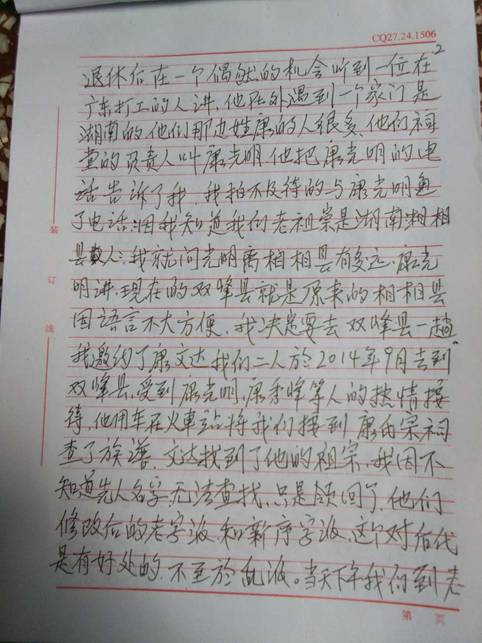 CQ27.24.1506
2
退休后在一个偶然的机会听到一位在
广东打工的人讲,他在外遇到一个家门是
湖南的,他们那边姓康的人很多,他们祠
堂的负责人叫康光明,他把康光明的电
话告诉了我,我拍不及待的与康光明通
了电话,因我知道我们老祖崇是湖南湘相
县人,我就问光明离相相县有多远,康光
明讲:现在的双峰县就是原来的相相县
因语言不大方便,我决意要去双峰县一趟
我邀约了康文达我们二人於2014年9月去到
双峰县,受到康光明,康季峰等人的热情接
待,他用车在火車站将我们接到康氏宗祠
查了族谱,文达找到了他的祖宗,我因不
知道先人名字,无法查找,只是领回了他们
修改后的老字派和新序字派,这个对后代
是有好处的,不至於乱派。当天下午我们到老
装
订
线
第 页